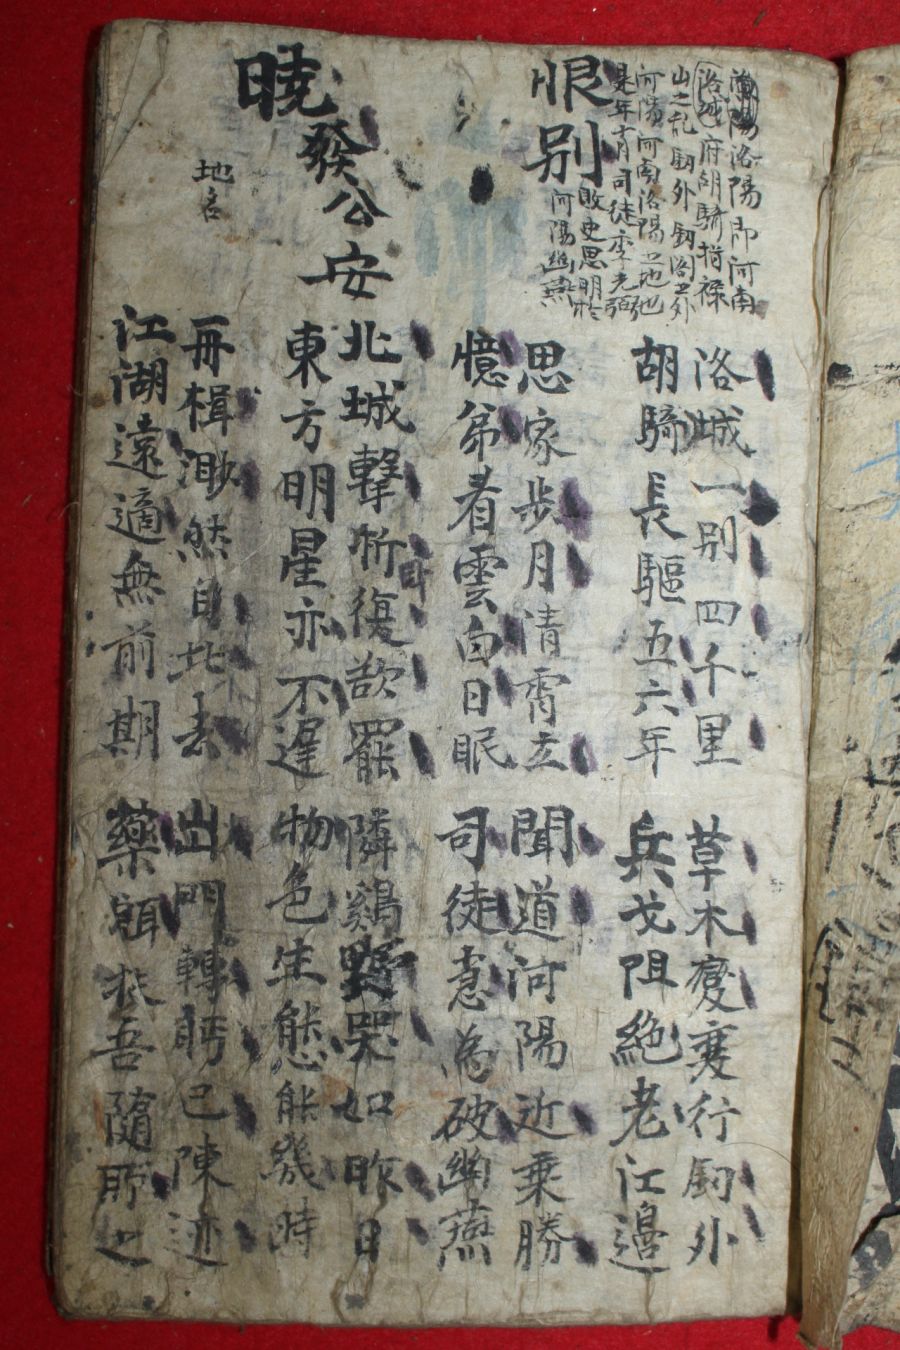 恨别
洛陽即河南
洛城府胡騎指禄
山之乱劔外劔阁之外
河陽河南洛陽之地也
是年十月司徒李光弼
敗史思明於
河陽幽燕
洛城一别四千里
胡騎長驅五六年
草木變衰行劔外
兵戈阻絶老江邉
思家步月清霄立
憶弟看雲白日眠
聞道河陽近乗勝
司徒急為破幽燕
暁發公安
地名
北城擊柝復欲罷
東方明星亦不遅
隣鷄野哭如昨日
物色生態能幾時
舟楫渺然自此去
江湖遠適無前期
出門轉眄已陳迹
藥餌扶吾隨所之